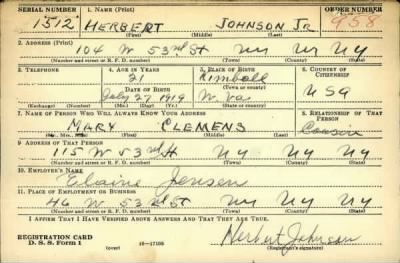 SERIAL NUMBER 1. NAME (Print) ORDER NUMBER
1512 HERBERT JOHNSON Jr 958
(First) (Middle) (Last)
2. ADDRESS (Print)
104 W 53rd St NY NY NY
(Number and street or R. F. D. number) (Town) (County) (State)
3. TELEPHONE 4. AGE IN YEARS 5. PLACE OF BIRTH 6. COUNTRY OF CITIZENSHIP
21 Kimball
DATE OF BIRTH (Town or county)
July 27 1919 W. Va USA
(Exchange) (Number) (Mo.) (Day) (Yr.) (State or country)
7. NAME OF PERSON WHO WILL ALWAYS KNOW YOUR ADDRESS 8. RELATIONSHIP OF THAT PERSON
MARY CLEMENS
(Mr., Mrs., Miss) (First) (Middle) (Last)
9. ADDRESS OF THAT PERSON
115 W 53rd St NY NY NY
(Number and street or R. F. D. number) (Town) (County) (State)
10. EMPLOYER'S NAME
Elaine Jensen
11. PLACE OF EMPLOYMENT OR BUSINESS
46 W 53rd St NY NY NY
(Number and street or R. F. D. number) (Town) (County) (State)
I AFFIRM THAT I HAVE VERIFIED ABOVE ANSWERS AND THAT THEY ARE TRUE.
REGISTRATION CARD
D. S. S. Form 1 (over) 16-17105 Herbert Johnson
(Registrant's signature)